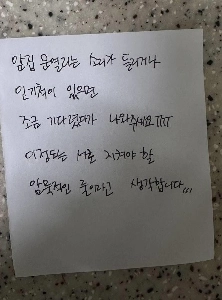 앞집 문열리는 소리가 들리거나
인기척이 있으면
조금 기다렸다가 나와주세요 ITT
이정도는 서로 지켜야 할
암묵적인 룰이라고 생각합니다,,,